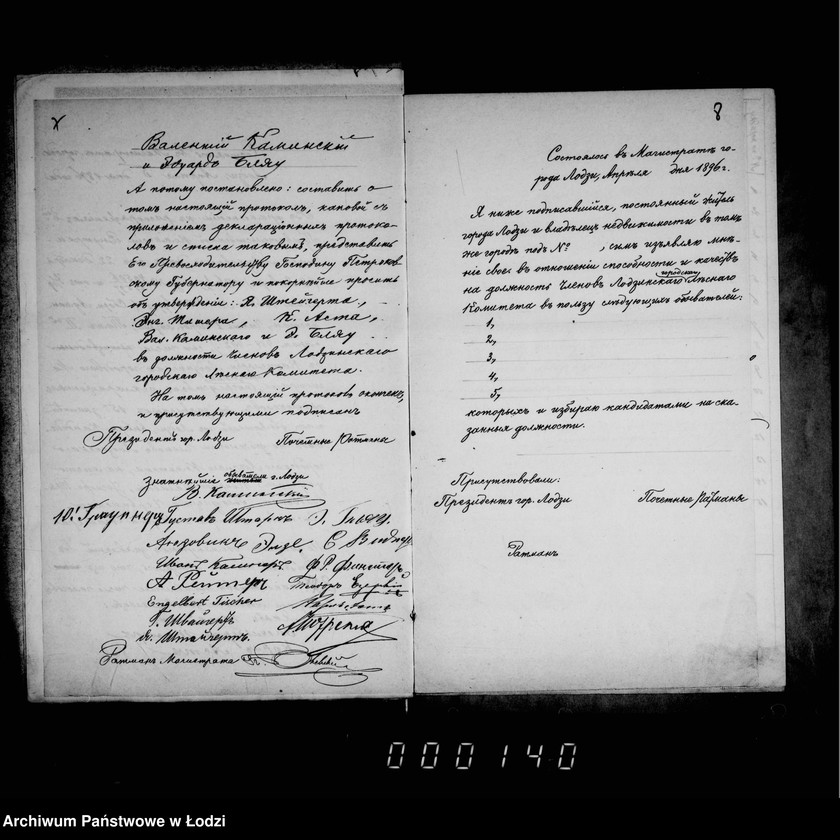 Валентій Каминскій
и Эдуардъ Бляу
А потому постановлено: составить о
томъ настоящій протоколъ, каковой съ
приложеніемъ декларацiонныхъ протоко-
ловъ и списка таковыхъ, представить
Его Превосходительству Господину Петроков-
скому Губернатору и покорнѣйше просить
объ утвержденіи: Я. Штейгерта,
Энг. Фишера, К. Аста,
Вал. Каминскаго и Э. Бляу
въ должности Членовъ Лодзинскаго
городскаго Лѣснаго Комитета.
На томъ настоящій протоколъ оконченъ,
и присутствующими подписанъ
Президентъ гор. Лодзи Почетные Ратманы
Знатнѣйшіе обыватели г. Лодзи
В. Каминскій
Густавъ Штаркъ Э. Бляу
Людовикъ
Иванъ
А. Рейтеръ Теодоръ
Engelbert Fischer
Г. Швайгертъ
Я. Штайгертъ
Ратманъ Магистрата
8
Состоялось въ Магистратѣ го-
рода Лодзи, Апрѣля дня 1896 г.
Я ниже подписавшійся, постоянный житель
города Лодзи и владѣлец недвижимости въ томъ
же городѣ подъ № , симъ изъявляю мнѣ-
ніе свое въ отношеніи способности и качествъ
на должность Членовъ Лодзинскаго городскаго Лѣснаго
Комитета въ пользу слѣдующихъ обывателей:
1,
2,
3,
4,
5,
которыхъ и избираю кандидатами на ска-
занныя должности.
Присутствовали:
Президентъ гор. Лодзи Почетные Ратманы
Ратманъ
000140
Archiwum Państwowe w Łodzi